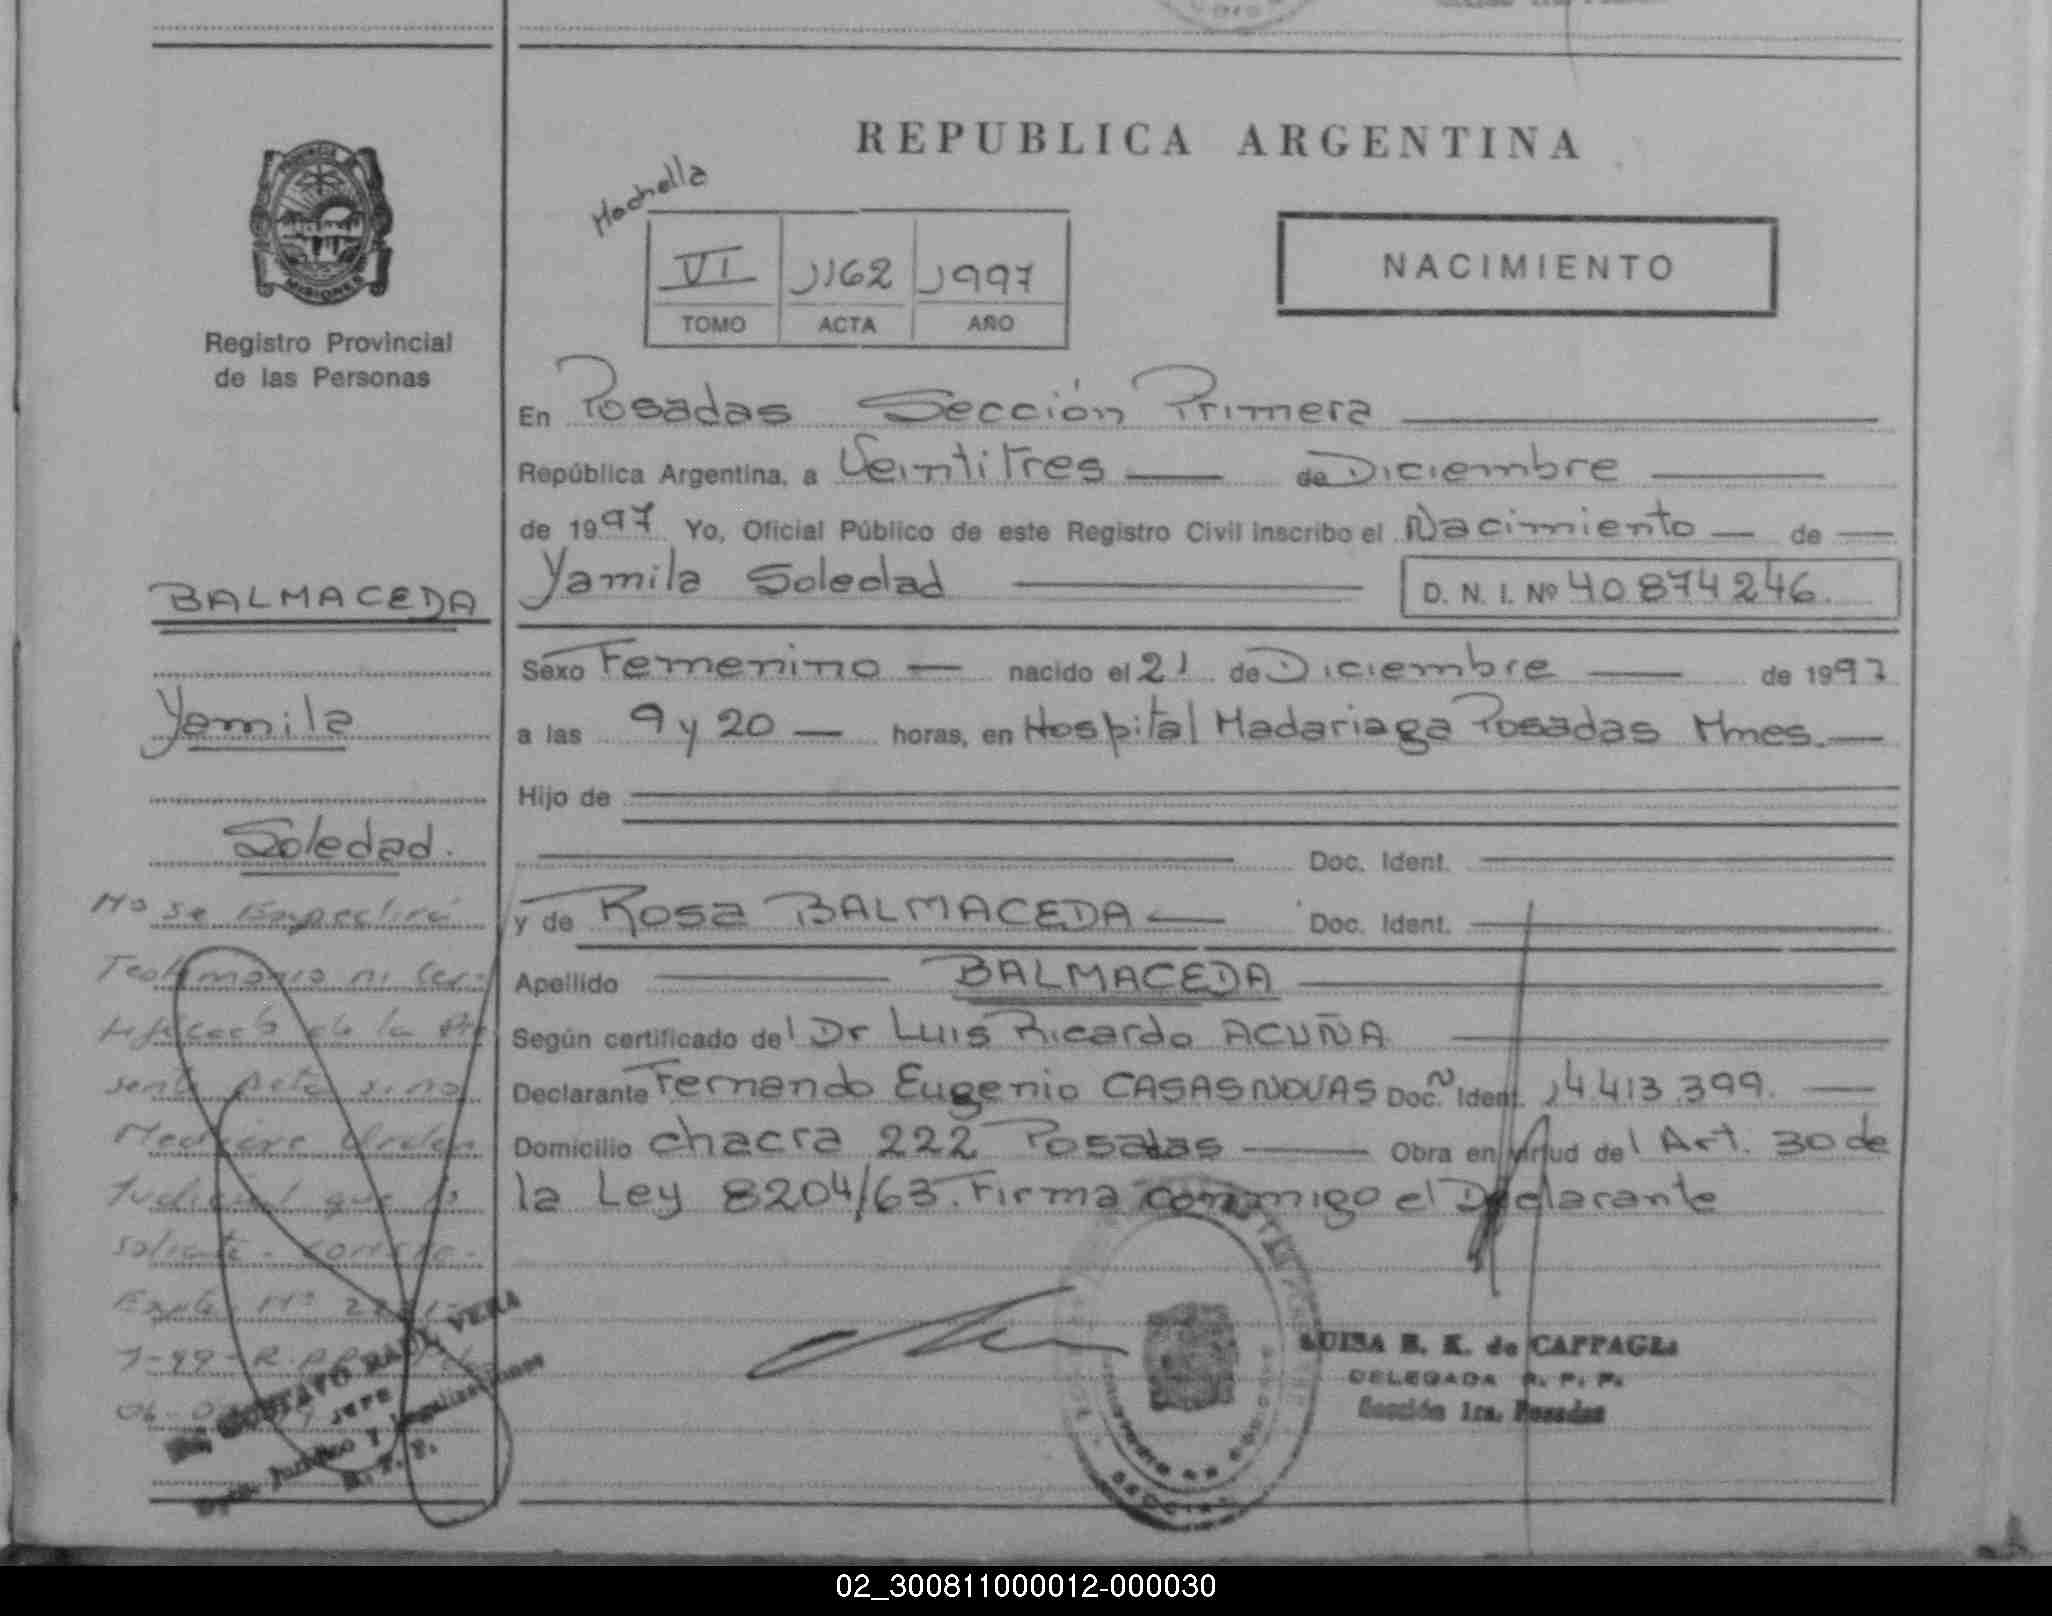 REPUBLICA ARGENTINA
NACIMIENTO
VI 1162 1997
TOMO ACTA AÑO
MISIONES
Registro Provincial
de las Personas
BALMACEDA
Yamila
Soledad.
No se Expedirá
Testimonio ni Cer-
tificado de la Pre
sente Acta si no
Mediare Orden
Judicial que lo
solicite.
Expte Nº
En Posadas Sección Primera
República Argentina, a Veintitres de Diciembre
de 1997 Yo, Oficial Público de este Registro Civil inscribo el Nacimiento de
Yamila Soledad D. N. I. Nº 40 874 246.
Sexo Femenino nacido el 21 de Diciembre de 1997
a las 9 y 20 horas, en Hospital Madariaga Posadas Mnes.
Hijo de
Doc. Ident.
y de Rosa BALMACEDA Doc. Ident.
Apellido BALMACEDA
Según certificado del Dr Luis Ricardo ACUÑA
Declarante Fernando Eugenio CASASNOVAS Doc. Ident. 14.413.399.
Domicilio chacra 222 Posadas Obra en virtud del Art. 30 de
la Ley 8204/63. Firma conmigo el Declarante
GUSTAVO RAUL VERA
JEFE
R. P. P.
LUISA B. K. de CAPPAGLI
DELEGADA R. P. P.
Sección 1ra. Posadas
02_300811000012-000030